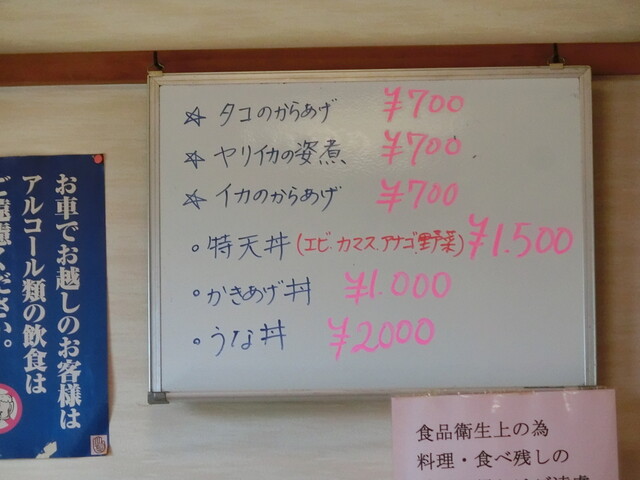 ☆ タコのからあげ ¥700
☆ ヤリイカの姿煮 ¥700
☆ イカのからあげ ¥700
○ 特天丼(エビ.カマス.アナゴ.野菜) ¥1.500
○ かきあげ丼 ¥1.000
○ うな丼 ¥2000
お車でお越しのお客様は
アルコール類の飲食は
ご遠慮ください。
食品衛生上の為
料理・食べ残しの